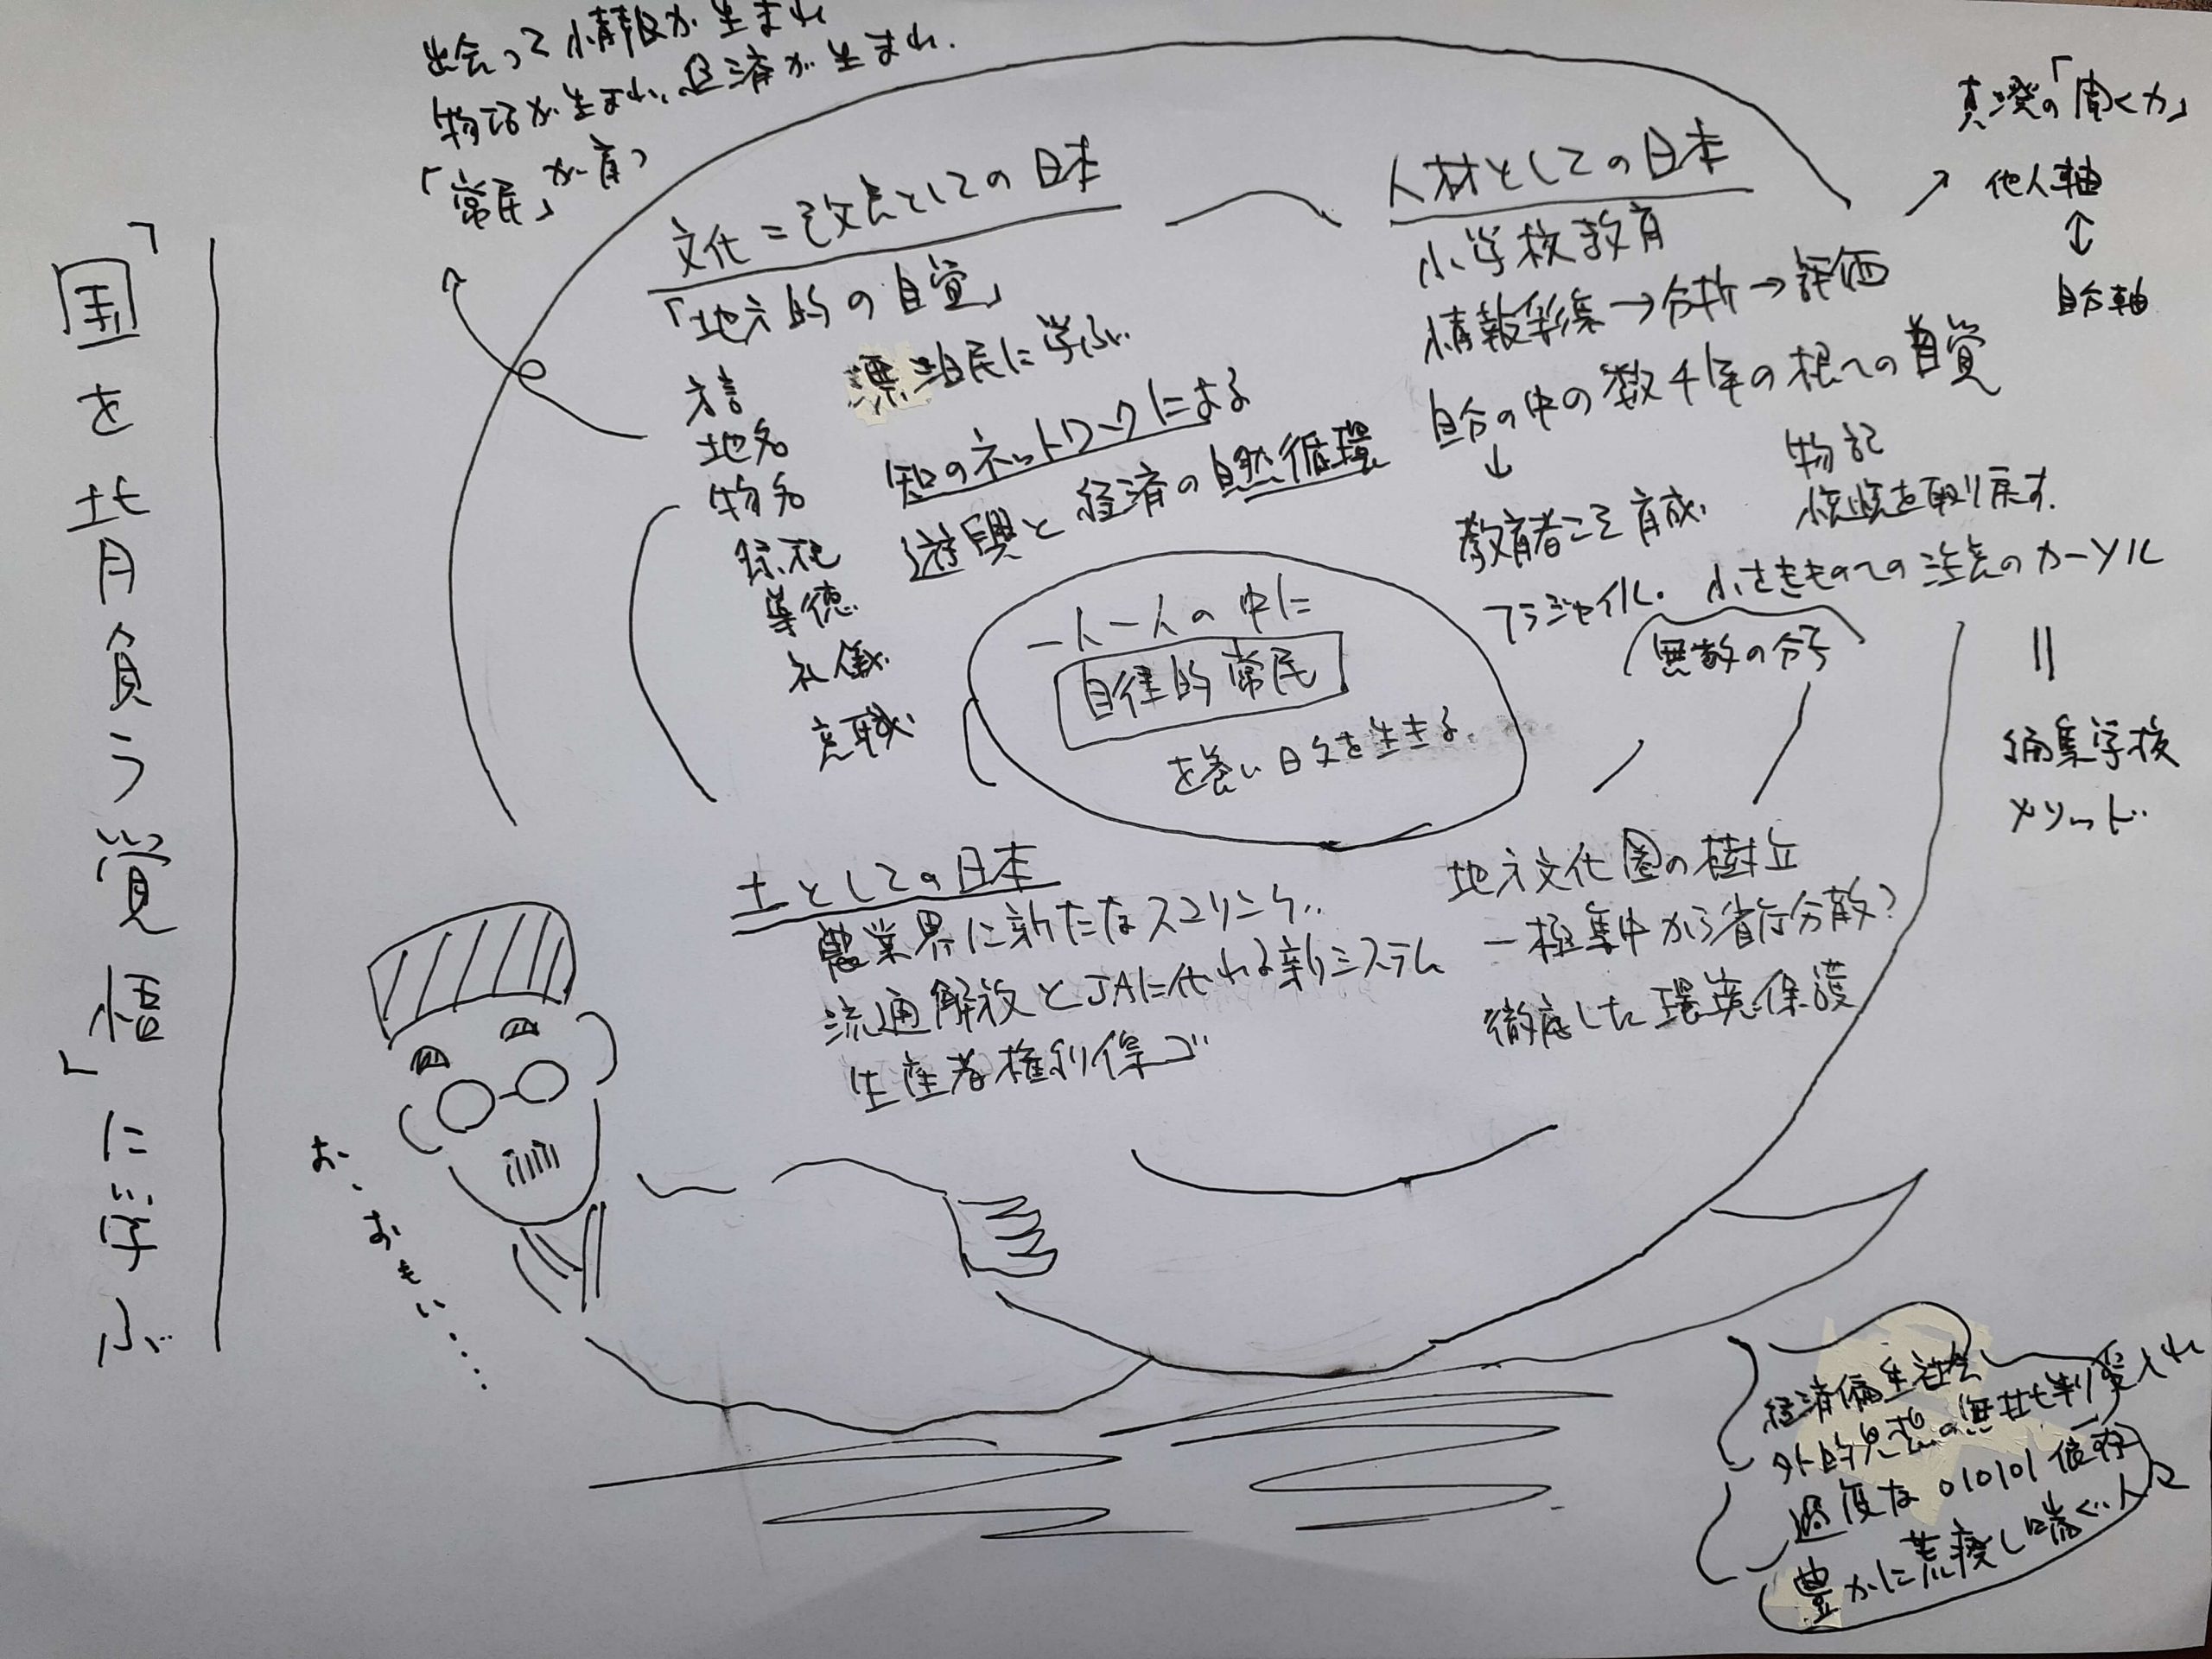 「国を背負う覚悟」に学ぶ
出会って情報が生まれ
物語が生まれ、経済が生まれ、
「常民」が育つ
文化=としての日本
「地方的の自覚」
方言
地名
物名
祭祀
道徳
礼儀
意識
漂泊民に学ぶ
知のネットワークによる
遊興と経済の自然循環
人材としての日本
小学校教育
情報収集→分析→評価
自分の中の数千年の根への自覚
↓
教育者こそ育成
物記
を取り戻す.
フラジャイル. 小さきものへの注意のカーソル
無数の分
真澄の「聞く力」
他人軸
↕
自分軸
=
編集学校
メソッド
一人一人の中に
自律的常民
を養い日々を生きる
土としての日本
農業界に新たなスコリング
流通解放とJAに代わる新システム
生産者権利保ゴ
地方文化圏の樹立
一極集中から省庁分散?
徹底した環境保護
お、おもい・・・・
経済偏重社会
外的思想の無批判受入れ
過度な010101依存
豊かに荒廃し喘ぐ人々